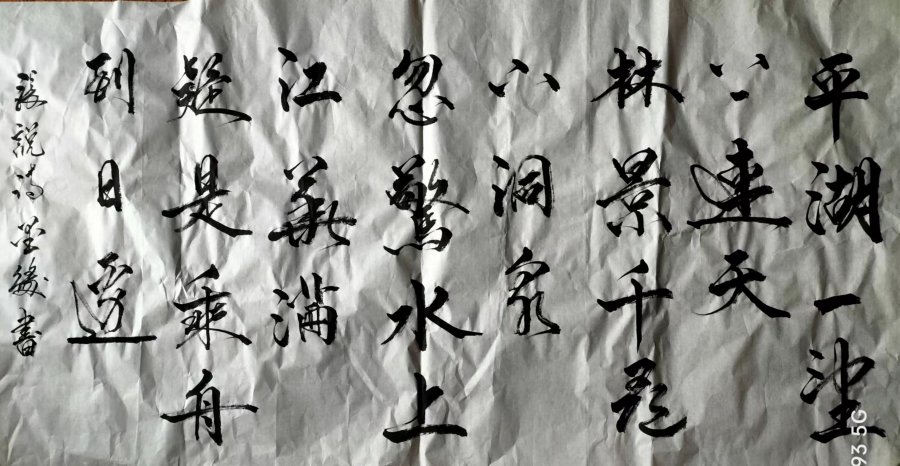 平湖一望
上連天
林景千尋
下洞泉
忽驚水上
江華滿
疑是乘舟
到日邊
張說詩書
93 5G